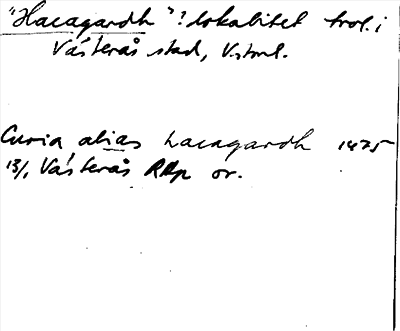 "Hacagardh"? lokalitet trol. i
Västerås stad, Vstml.
Curia alias hacagardh 1475
13/1 Västerås RAp or.